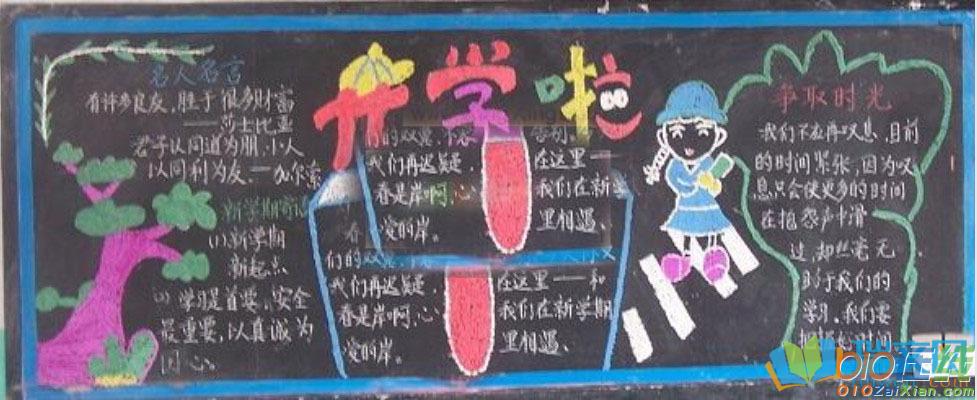 开学啦
名人名言
有许多良友，胜于很多财富
——莎士比亚
君子以同道为朋，小人
以同利为友。——
新学期寄语
(1)新学期
新起点
(2)学习是首要，安全
最重要，以真诚为
同心。
们的双翼，
我们再迟疑，
春是岸啊，心
爱的岸。
在这里——
我们在新学
里相遇、
们的双翼，
我们再迟疑，
春是岸啊，心
爱的岸。
在这里——和
我们在新学期
里相遇、
争取时光
我们不应再叹息，目前
的时间紧张，因为叹
息只会使更多的时间
在抱怨声中滑
过，却丝毫无
助于我们的
学习。我们要
把
010在线
010ZaiXian.com